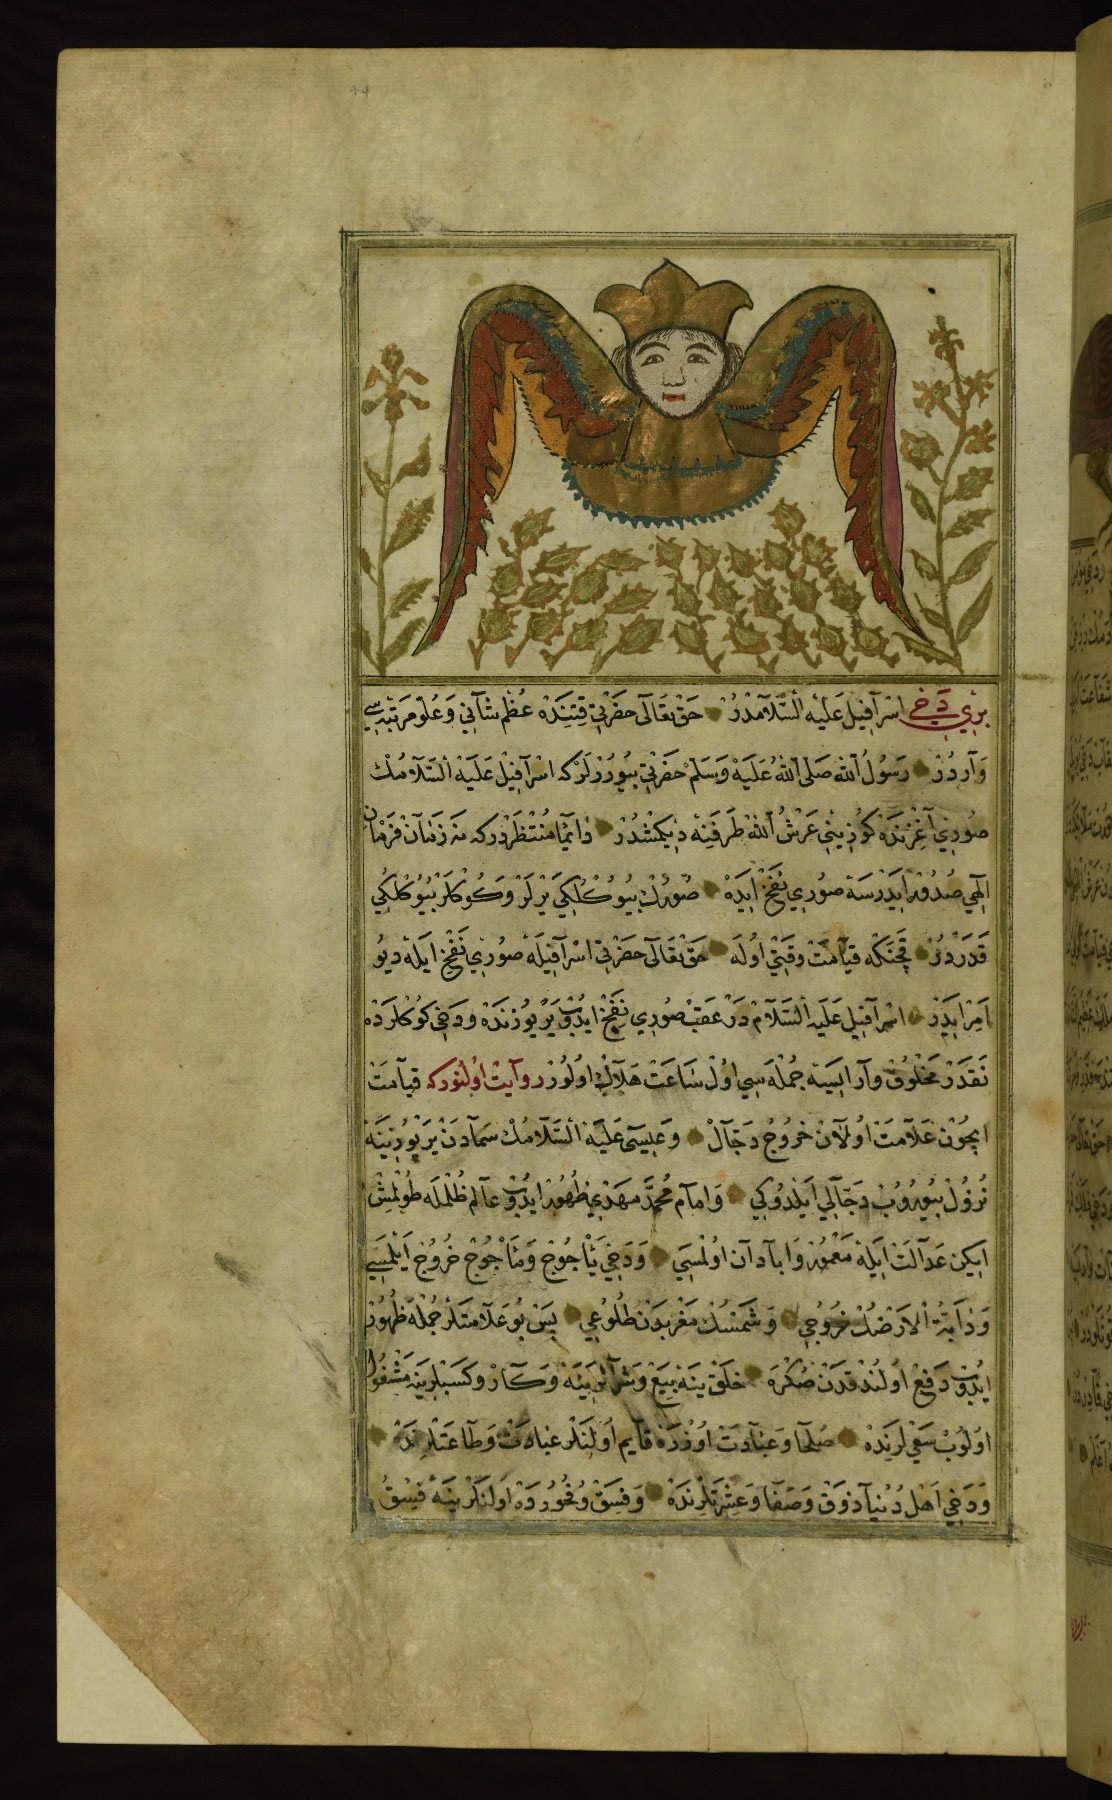 بري دخي اسرآفيل عليه السلامدر حق تعالى حضرتي قتنده عظم شآني و علو مرتبه سي
وآردر رسول الله صلى الله عليه وسلم حضرتي بيوررلركه اسرآفيل عليه السلامك
صوري آغزنده كوزيني عرش الله طرفينه ديكمشدر دآئما منتظردركه نه زمان فرمان
الهي صدور ايدرسه صوري نفخ ايده صورك بيوكلكي يرلر وكوكلر بيوكلكي
قدردر قچنكه قيآمت وقتي اوله حق تعالى حضرتي اسرآفيله صوري نفخ ايله ديو
امر ايدر اسرآفيل عليه السلام درعقب صوري نفخ ايدوب ير يوزنده ودخي كوكلرده
نقدر مخلوق وآر ايسه جمله سي اول ساعت هلآك اولور روآيت اولنوركه قيآمت
ايچون علآمت اولآن خروج دجآل وعيسى عليه السلامك سمآدن ير يوزينه
نزول بيوروب دجآلي ايلدوكي وامآم محمد مهدي ظهور ايدوب عآلم ظلمله طولمش
ايكن عدآلت ايله معمور وآبآدآن اولمسي ودخي يأجوج ومأجوج خروج ايلمسي
ودآبة الارضك خروجي وشمسك مغربدن طلوعي پس بو علآمتلر جمله ظهور
ايدوب دفع اولندقدن صكره خلق ينه بيع وشرآلرينه وكآر وكسبلرينه مشغول
اولوب سعيلرنده صلحا وعبآدت اوزره قآيم اولنلر عبادت وطآعتلرنده
ودخي اهل دنيآ ذوق وصفا وعشرتلرنده وفسق وفجورده اولنلر ينه فسق